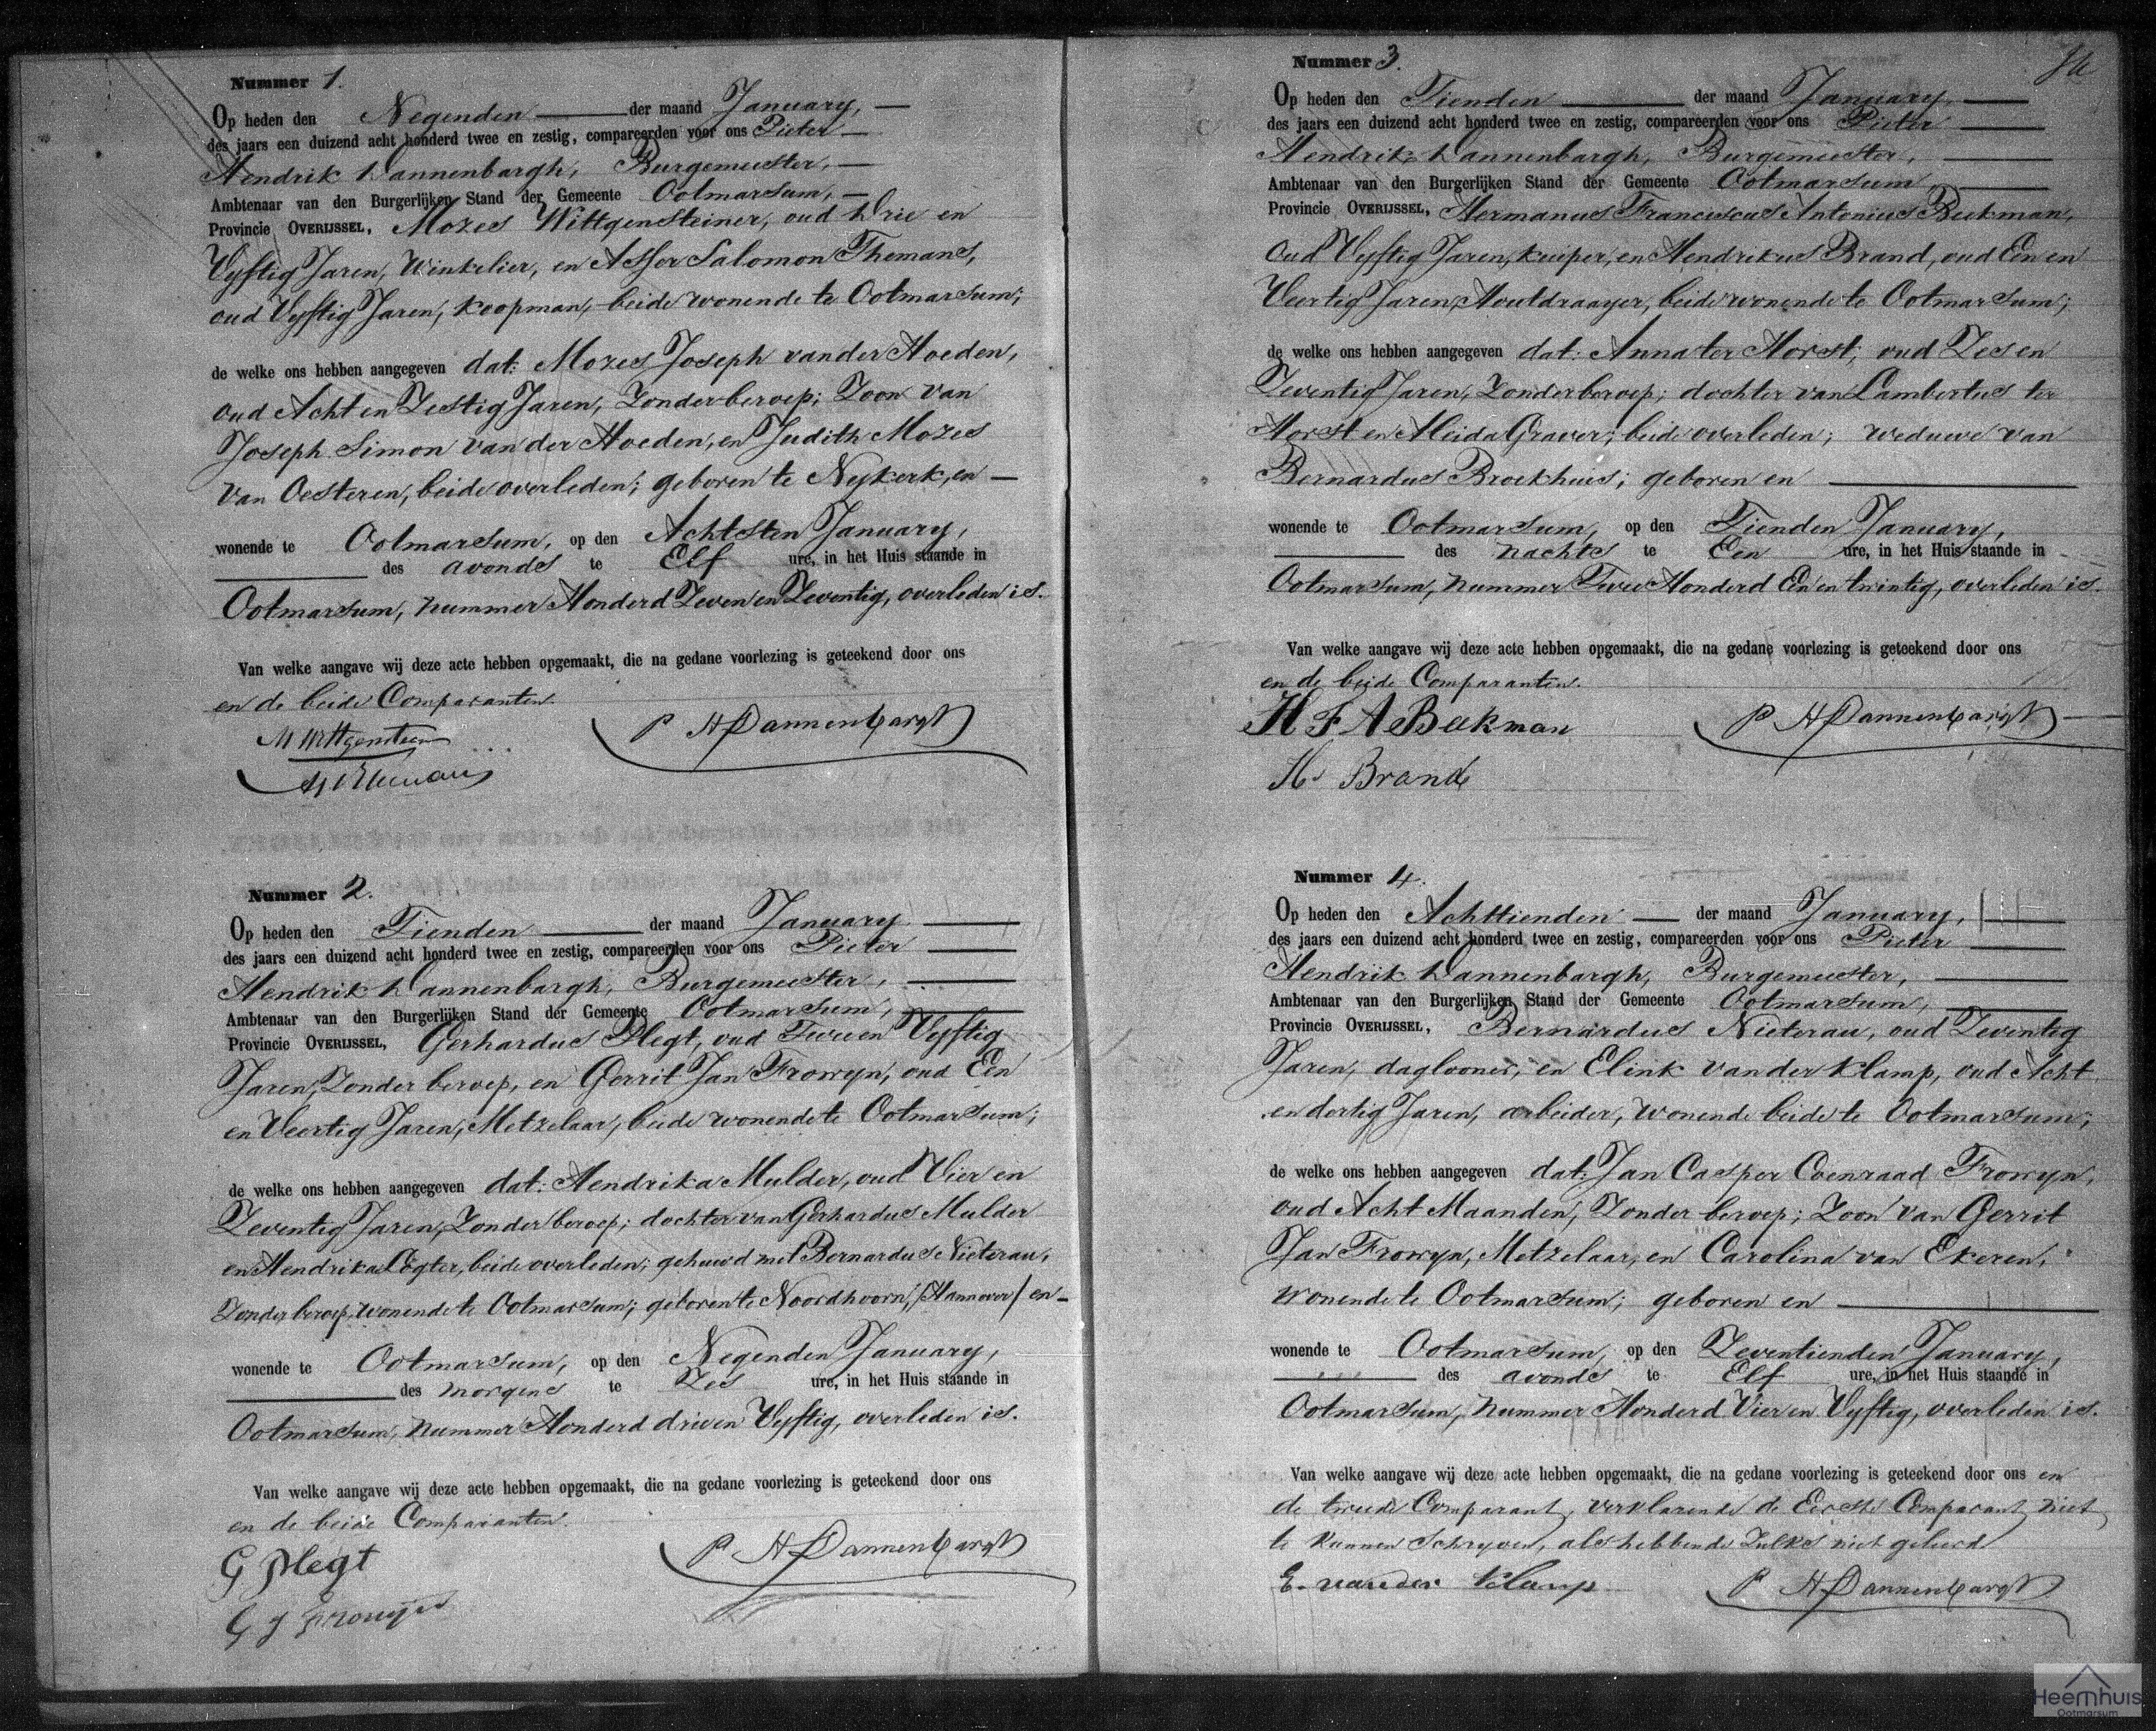 Nummer 1.
Op heden den Negenden der maand January,
des jaars een duizend acht honderd twee en zestig, compareerden voor ons Pieter
Hendrik Dannenbargh, Burgemeester,
Ambtenaar van den Burgerlijken Stand der Gemeente Ootmarsum,
Provincie OVERIJSSEL, Mozes Wittgensteiner, oud Drie en
Vyftig Jaren, Winkelier, en Asser Salomon Themans,
oud Vyftig Jaren, koopman, beide wonende te Ootmarsum;
de welke ons hebben aangegeven dat: Mozes Joseph van der Hoeden,
oud Acht en Zestig Jaren, Zonder beroep; Zoon van
Joseph Simon van der Hoeden, en Judith Mozes
van Oesteren, beide overleden; geboren te Nykerk, en
wonende te Ootmarsum, op den Achtsten January,
des avonds te Elf ure, in het Huis staande in
Ootmarsum, nummer Honderd Zeven en Zeventig, overleden is.
Van welke aangave wij deze acte hebben opgemaakt, die na gedane voorlezing is geteekend door ons
en de beide Comparanten.
M Wittgensteiner
P H Dannenbargh
Nummer 2.
Op heden den Tienden der maand January
des jaars een duizend acht honderd twee en zestig, compareerden voor ons Pieter
Hendrik Dannenbargh, Burgemeester,
Ambtenaar van den Burgerlijken Stand der Gemeente Ootmarsum,
Provincie OVERIJSSEL, Gerhardus Plegt, oud Twee en Vyftig
Jaren, Zonder beroep, en Gerrit Jan Frowyn, oud Een
en Veertig Jaren, Metzelaar, beide wonende te Ootmarsum;
de welke ons hebben aangegeven dat: Hendrika Mulder, oud Vier en
Zeventig Jaren, Zonder beroep; dochter van Gerhardus Mulder
en Hendrika, beide overleden; gehuwd met Bernardus Nieterau,
Zonder beroep, wonende te Ootmarsum; geboren te Noordhoorn, /Hannover/ en
wonende te Ootmarsum, op den Negenden January,
des morgens te Zes ure, in het Huis staande in
Ootmarsum, nummer Honderd drie en Vyftig, overleden is.
Van welke aangave wij deze acte hebben opgemaakt, die na gedane voorlezing is geteekend door ons
en de beide Comparanten.
G Plegt
P H Dannenbargh
G J Frowijn
Nummer 3.
Op heden den Tienden der maand January
des jaars een duizend acht honderd twee en zestig, compareerden voor ons Pieter
Hendrik Dannenbargh, Burgemeester,
Ambtenaar van den Burgerlijken Stand der Gemeente Ootmarsum,
Provincie OVERIJSSEL, Hermanus Franciscus Antonius Beekman,
oud Vyftig Jaren, kuiper, en Hendrikus Brand, oud Een en
Veertig Jaren, Houtdraayer, beide wonende te Ootmarsum;
de welke ons hebben aangegeven dat: Anna ter Horst, oud Zes en
Zeventig Jaren, Zonder beroep; dochter van Lambertus ter
Horst en Aleida Graver; beide overleden; weduwe van
Bernardus Broekhuis; geboren en
wonende te Ootmarsum, op den Tienden January,
des nachts te Een ure, in het Huis staande in
Ootmarsum, nummer Twee Honderd Een en twintig, overleden is.
Van welke aangave wij deze acte hebben opgemaakt, die na gedane voorlezing is geteekend door ons
en de beide Comparanten.
H F A Beekman
P H Dannenbargh
H. Brand
Nummer 4.
Op heden den Achttienden der maand January,
des jaars een duizend acht honderd twee en zestig, compareerden voor ons Pieter
Hendrik Dannenbargh, Burgemeester,
Ambtenaar van den Burgerlijken Stand der Gemeente Ootmarsum,
Provincie OVERIJSSEL, Bernardus Nieterau, oud Zeventig
Jaren, daglooner, en Elink van der Klamp, oud Acht
en dertig Jaren, arbeider, wonende beide te Ootmarsum;
de welke ons hebben aangegeven dat: Jan Casper Coenraad Frowyn,
oud Acht Maanden, Zonder beroep; Zoon van Gerrit
Jan Frowyn, Metzelaar, en Carolina van Ekeren,
wonende te Ootmarsum; geboren en
wonende te Ootmarsum, op den Zeventienden January,
des avonds te Elf ure, in het Huis staande in
Ootmarsum, nummer Honderd Vier en Vyftig, overleden is.
Van welke aangave wij deze acte hebben opgemaakt, die na gedane voorlezing is geteekend door ons en
de tweede Comparant, verklarende de Eerste Comparant niet
te kunnen Schryven, als hebbende Zulks niet geleerd
E. van der Klamp
P H Dannenbargh
Heemhuis
Ootmarsum